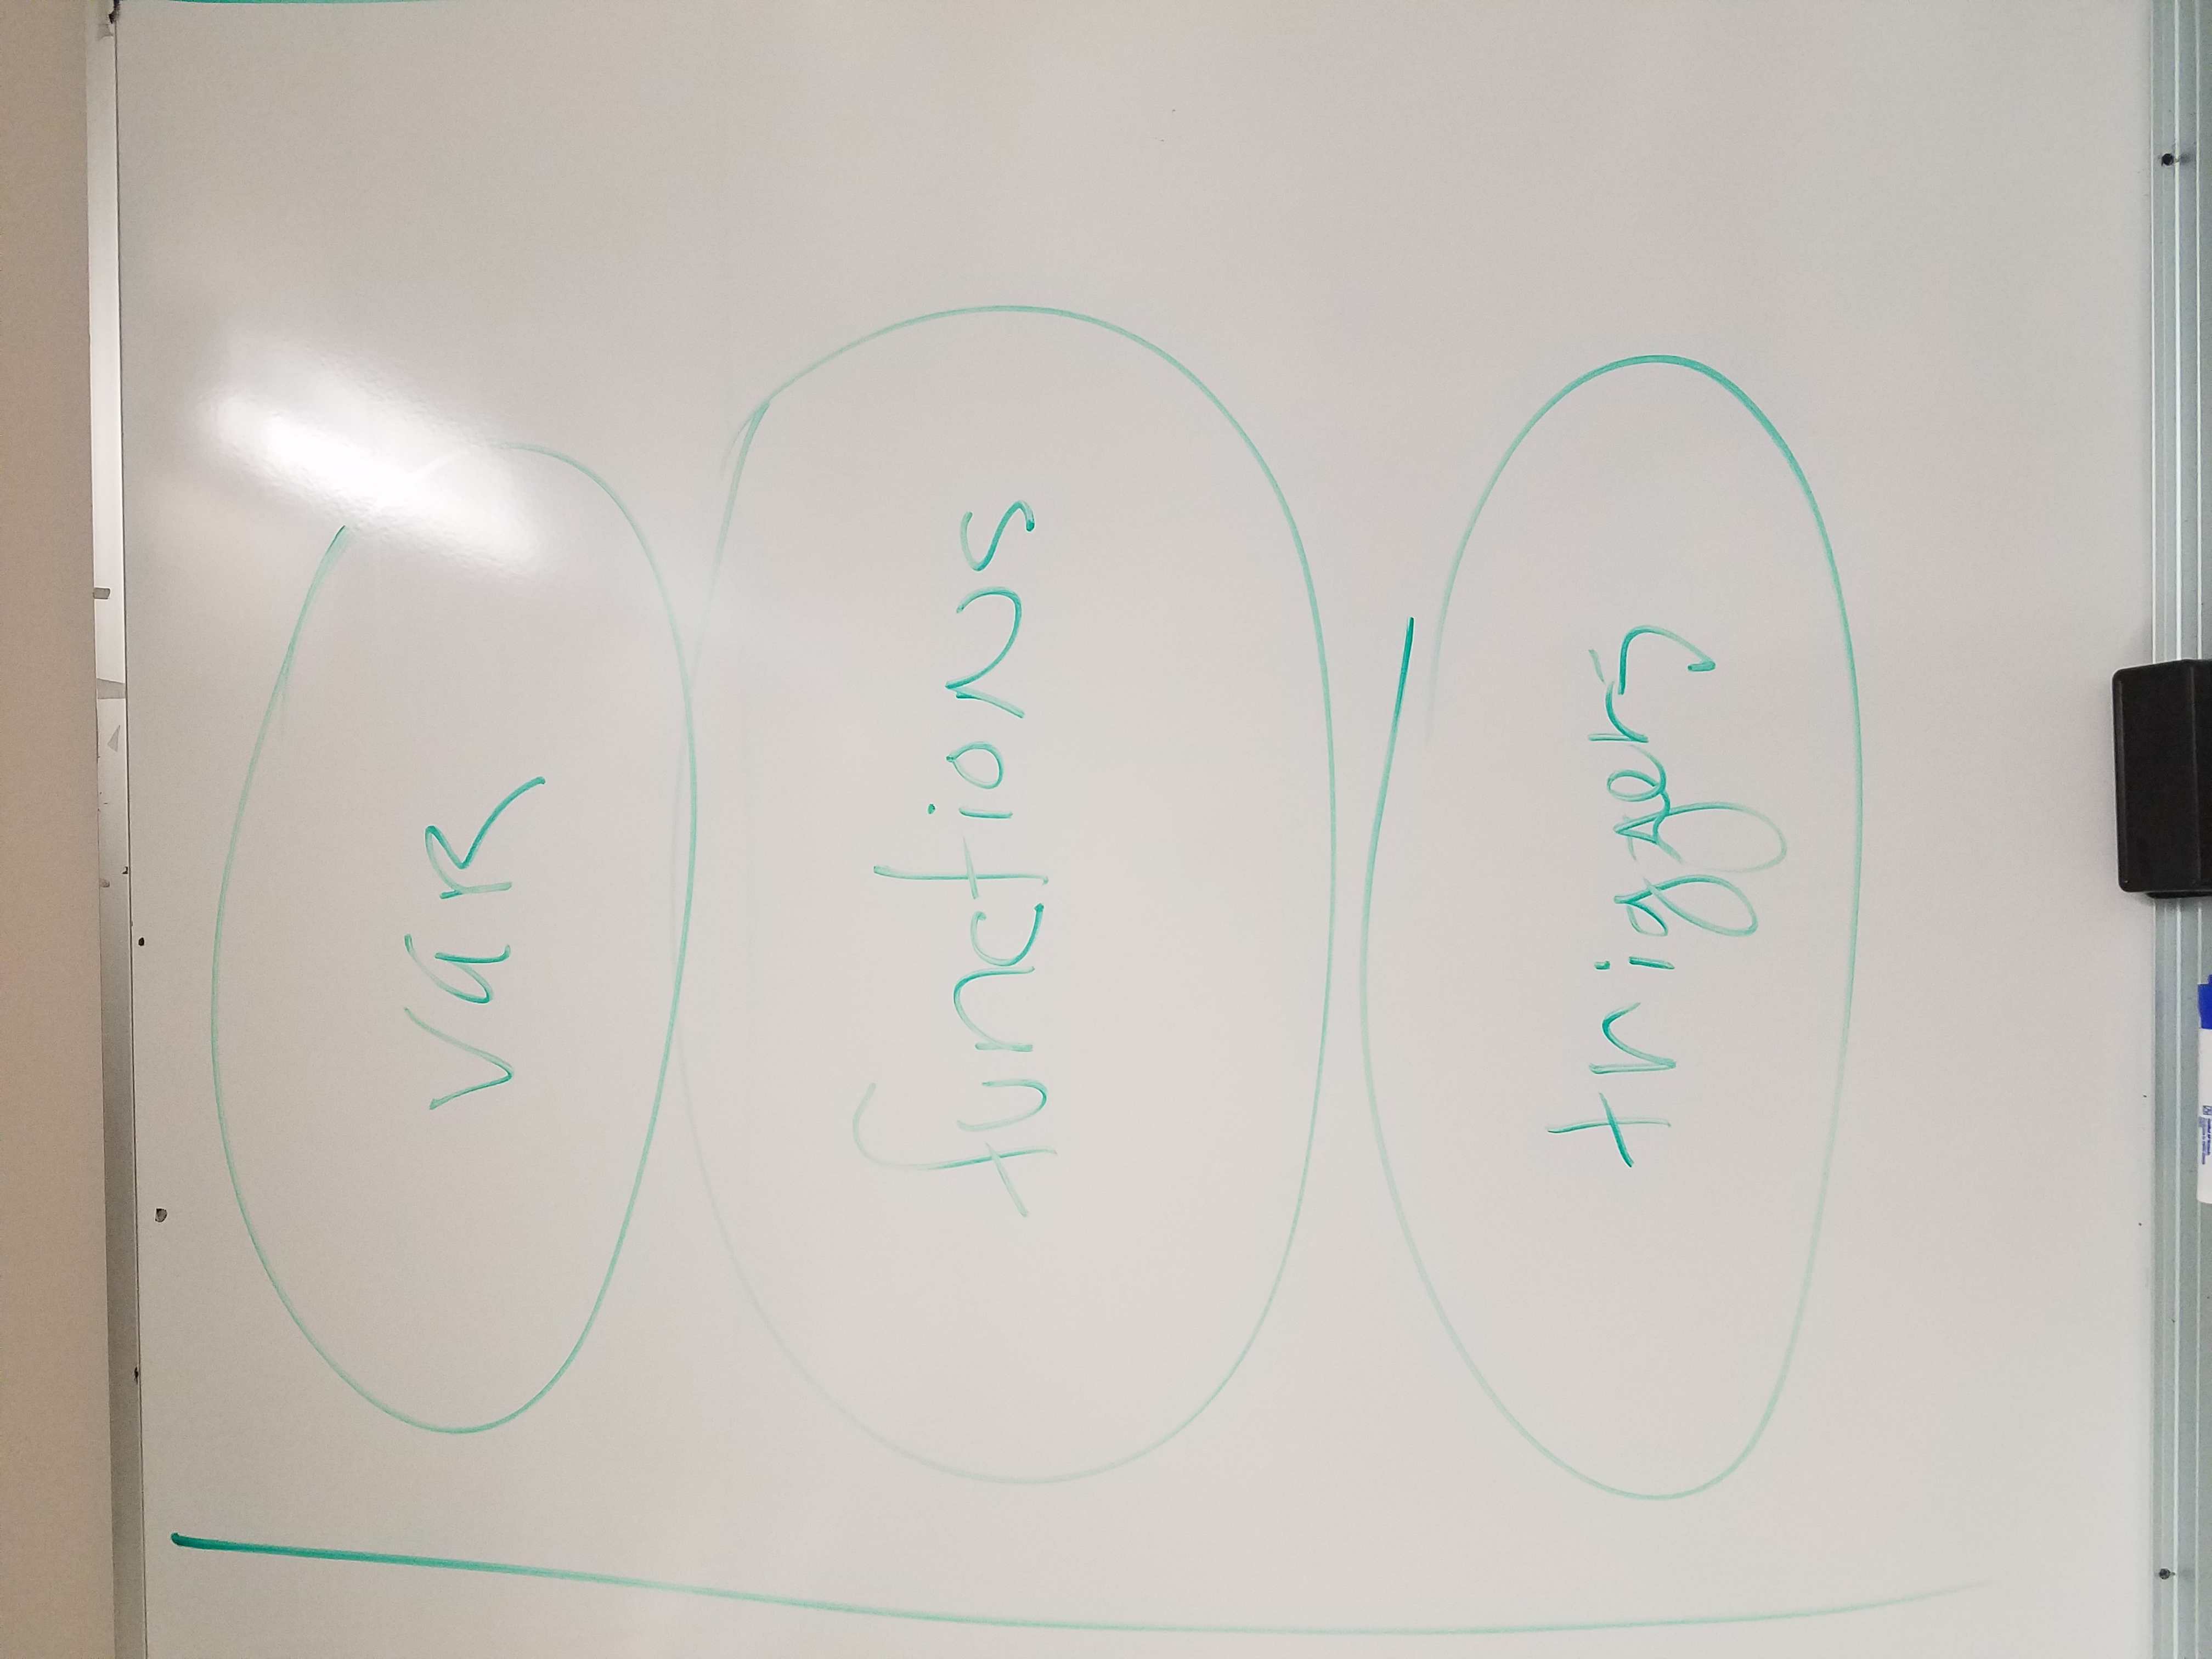 var
functions
triggers